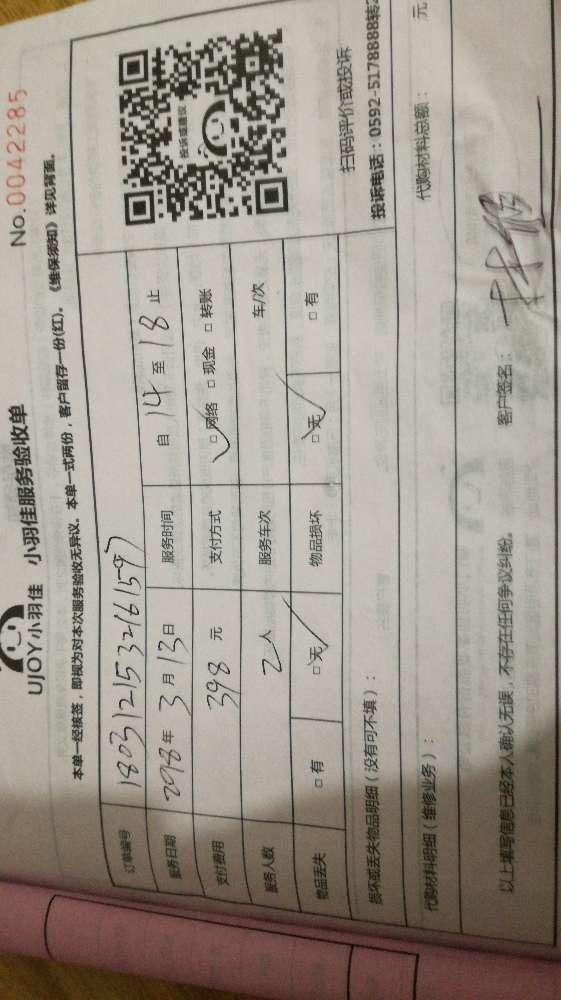 No.0042285
UJOY小羽佳 小羽佳服务验收单
本单一经核签，即视为对本次服务验收无异议。本单一式两份，客户留存一份(红)。《维保须知》详见背面。
订单编号 1803121532161597
服务日期 2018年3月13日 服务时间 自14至18止
支付费用 398元 支付方式 □网络 □现金 □转账
服务人数 2人 服务车次 车/次
物品丢失 □有 □无 物品损坏 □无 □有
投诉或建议
扫码评价或投诉
投诉电话：0592-5178888转2
损坏或丢失物品明细（没有可不填）：
代购材料明细（维修业务）： 代购材料总额： 元
以上填写信息已经本人确认无误，不存在任何争议纠纷。 客户签名：